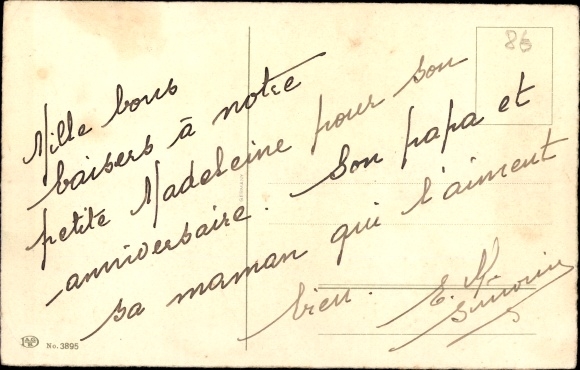 86
Mille bons
baisers à notre
petite Madeleine pour son
anniversaire. Son papa et
sa maman qui l'aiment
bien. E. M.
No. 3895